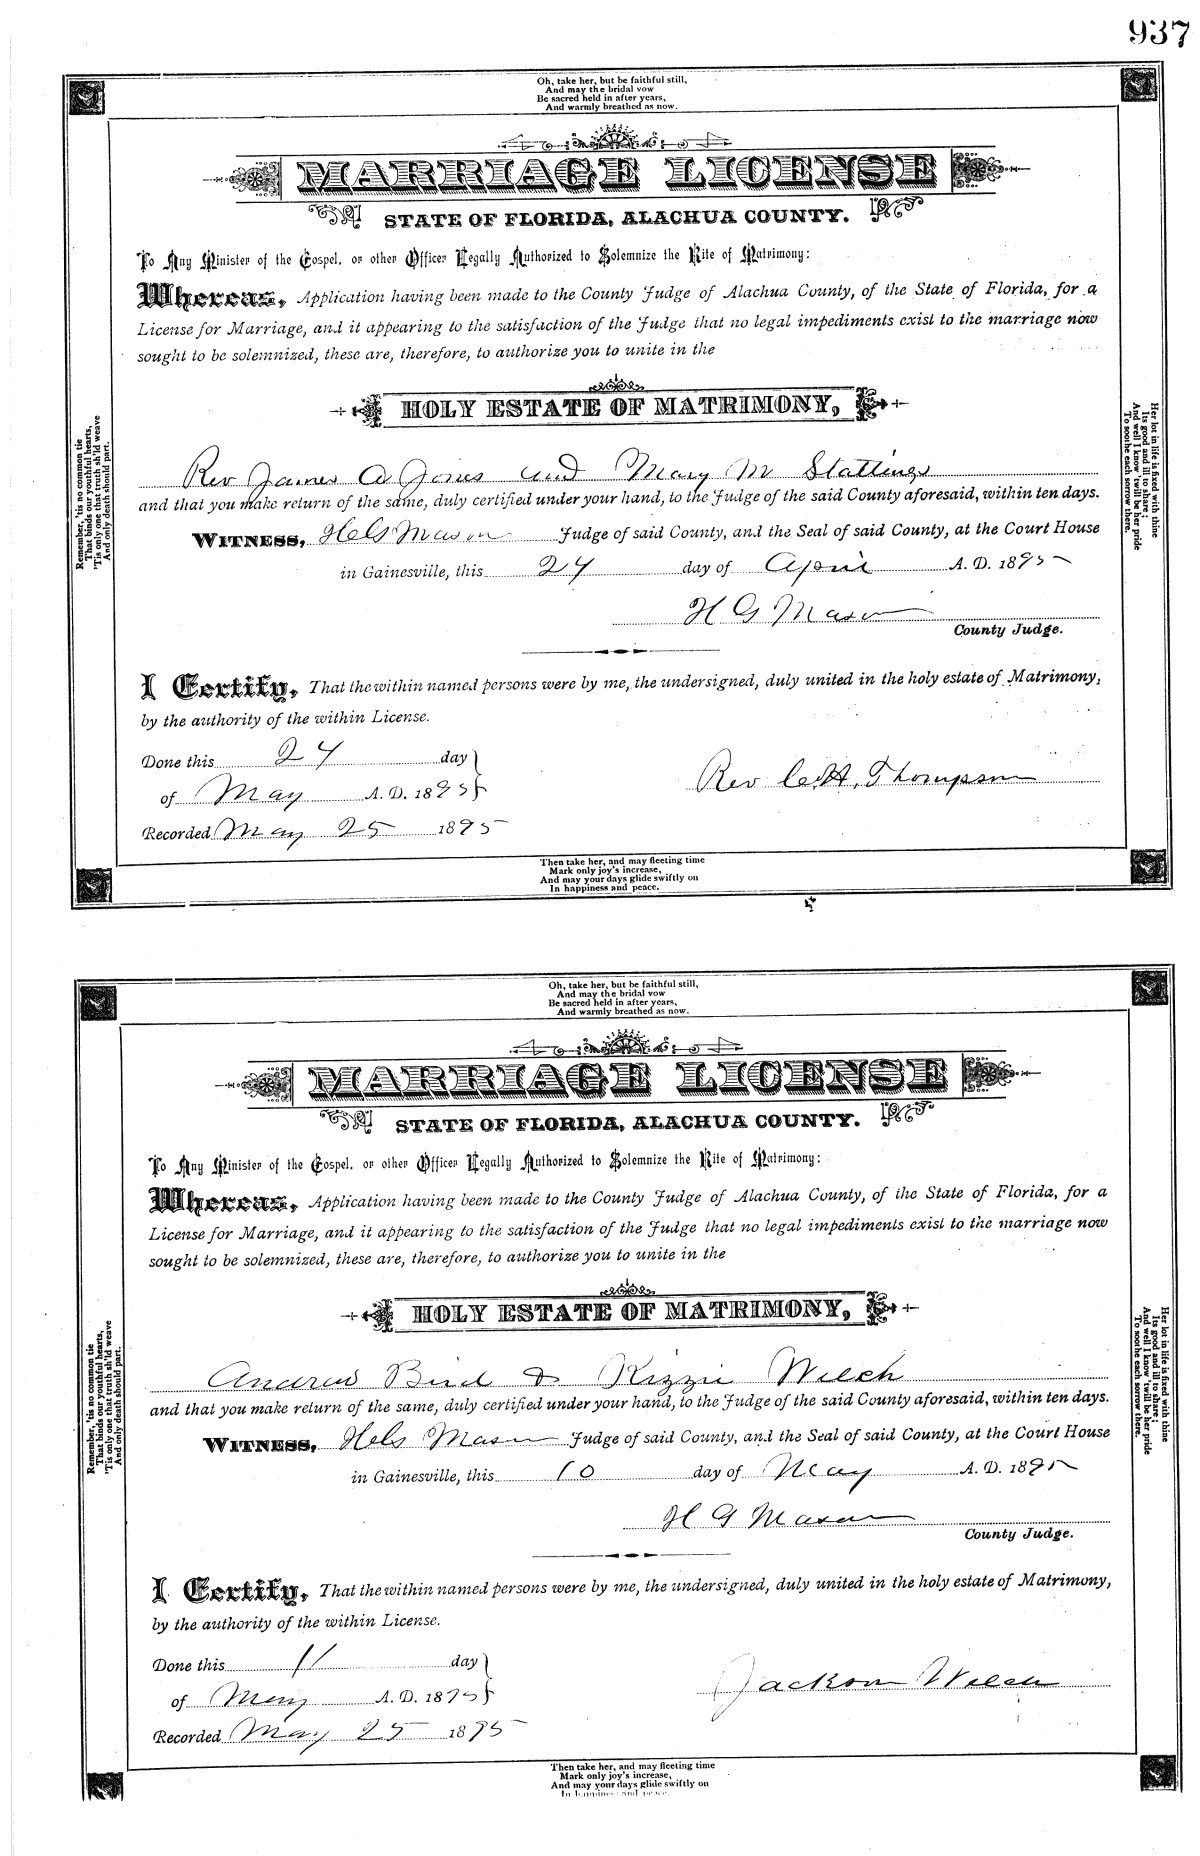 937
Oh, take her, but be faithful still,
And may the bridal vow
Be sacred held in after years,
And warmly breathed as now.
MARRIAGE LICENSE
STATE OF FLORIDA, ALACHUA COUNTY.
To Any Minister of the Gospel, or other Officer Legally Authorized to Solemnize the Rite of Matrimony:
Whereas, Application having been made to the County Judge of Alachua County, of the State of Florida, for a
License for Marriage, and it appearing to the satisfaction of the Judge that no legal impediments exist to the marriage now
sought to be solemnized, these are, therefore, to authorize you to unite in the
HOLY ESTATE OF MATRIMONY,
Rev James A Jones and Mary M Stallings
and that you make return of the same, duly certified under your hand, to the Judge of the said County aforesaid, within ten days.
WITNESS, Mason Judge of said County, and the Seal of said County, at the Court House
in Gainesville, this 24 day of April A. D. 1895
H G Mason
County Judge.
I Certify, That the within named persons were by me, the undersigned, duly united in the holy estate of Matrimony,
by the authority of the within License.
Done this 24 day
of May A. D. 1895
Rev C.H. Thompson
Recorded May 25 1895
Remember, 'tis no common tie
That binds our youthful hearts,
'Tis only one that truth sh'ld weave
And only death should part.
Her lot in life is fixed with thine
Its good and ill to share;
And well I know 'twill be her pride
To soothe each sorrow there.
Then take her, and may fleeting time
Mark only joy's increase,
And may your days glide swiftly on
In happiness and peace.
Oh, take her, but be faithful still,
And may the bridal vow
Be sacred held in after years,
And warmly breathed as now.
MARRIAGE LICENSE
STATE OF FLORIDA, ALACHUA COUNTY.
To Any Minister of the Gospel, or other Officer Legally Authorized to Solemnize the Rite of Matrimony:
Whereas, Application having been made to the County Judge of Alachua County, of the State of Florida, for a
License for Marriage, and it appearing to the satisfaction of the Judge that no legal impediments exist to the marriage now
sought to be solemnized, these are, therefore, to authorize you to unite in the
HOLY ESTATE OF MATRIMONY,
Andrew Bird & Kizzie Welch
and that you make return of the same, duly certified under your hand, to the Judge of the said County aforesaid, within ten days.
WITNESS, Mason Judge of said County, and the Seal of said County, at the Court House
in Gainesville, this 10 day of May A. D. 1895
H G Mason
County Judge.
I Certify, That the within named persons were by me, the undersigned, duly united in the holy estate of Matrimony,
by the authority of the within License.
Done this 11 day
of May A. D. 1895
Jackson Welch
Recorded May 25 1895
Remember, 'tis no common tie
That binds our youthful hearts,
'Tis only one that truth sh'ld weave
And only death should part.
Her lot in life is fixed with thine
Its good and ill to share;
And well I know 'twill be her pride
To soothe each sorrow there.
Then take her, and may fleeting time
Mark only joy's increase,
And may your days glide swiftly on
In happiness and peace.